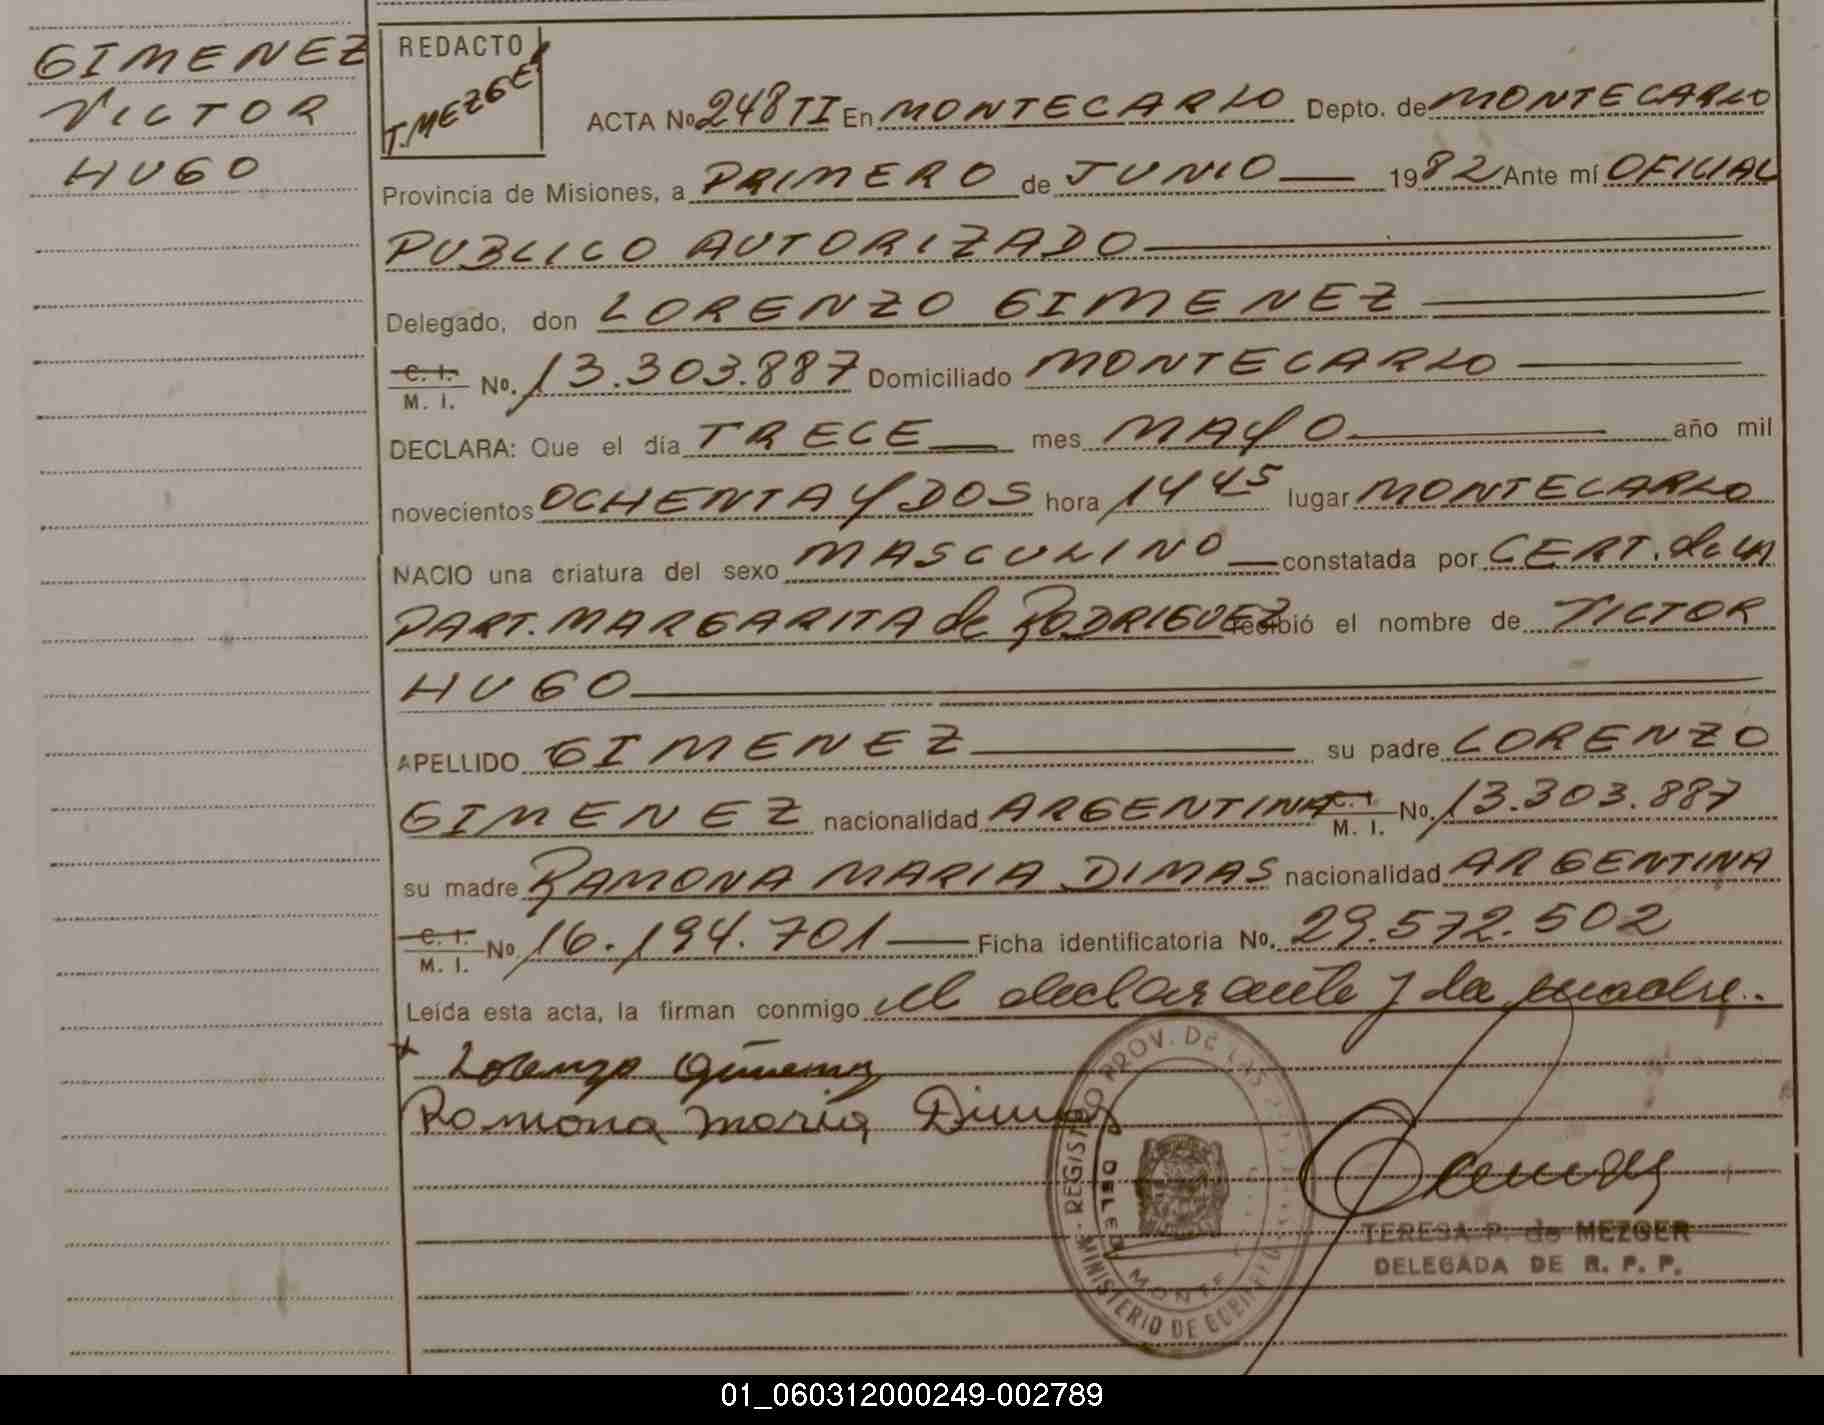 GIMENEZ
VICTOR
HUGO
REDACTO
T.MEZGER
ACTA Nº 248 TI En MONTECARLO Depto. de MONTECARLO
Provincia de Misiones, a PRIMERO de JUNIO 1982 Ante mí OFICIAL
PUBLICO AUTORIZADO
Delegado, don LORENZO GIMENEZ
C. I. M. I. Nº. 13.303.887 Domiciliado MONTECARLO
DECLARA: Que el día TRECE mes MAYO año mil
novecientos OCHENTA y DOS hora 14 45 lugar MONTECARLO
NACIO una criatura del sexo MASCULINO constatada por CERT. de la
PART. MARGARITA de RODRIGUEZ recibió el nombre de VICTOR
HUGO
APELLIDO GIMENEZ su padre LORENZO
GIMENEZ nacionalidad ARGENTINA C. I. M. I. Nº. 13.303.887
su madre RAMONA MARIA DIMAS nacionalidad ARGENTINA
C. I. M. I. Nº 16.194.701 Ficha identificatoria Nº. 29.572.502
Leída esta acta, la firman conmigo el declarante y la madre.
Lorenzo Gimenez
Ramona maria Dimas
REGISTRO PROV. DE LAS
MINISTERIO DE GOBIERNO
TERESA P. de MEZGER
DELEGADA DE R. P. P.
01_060312000249-002789